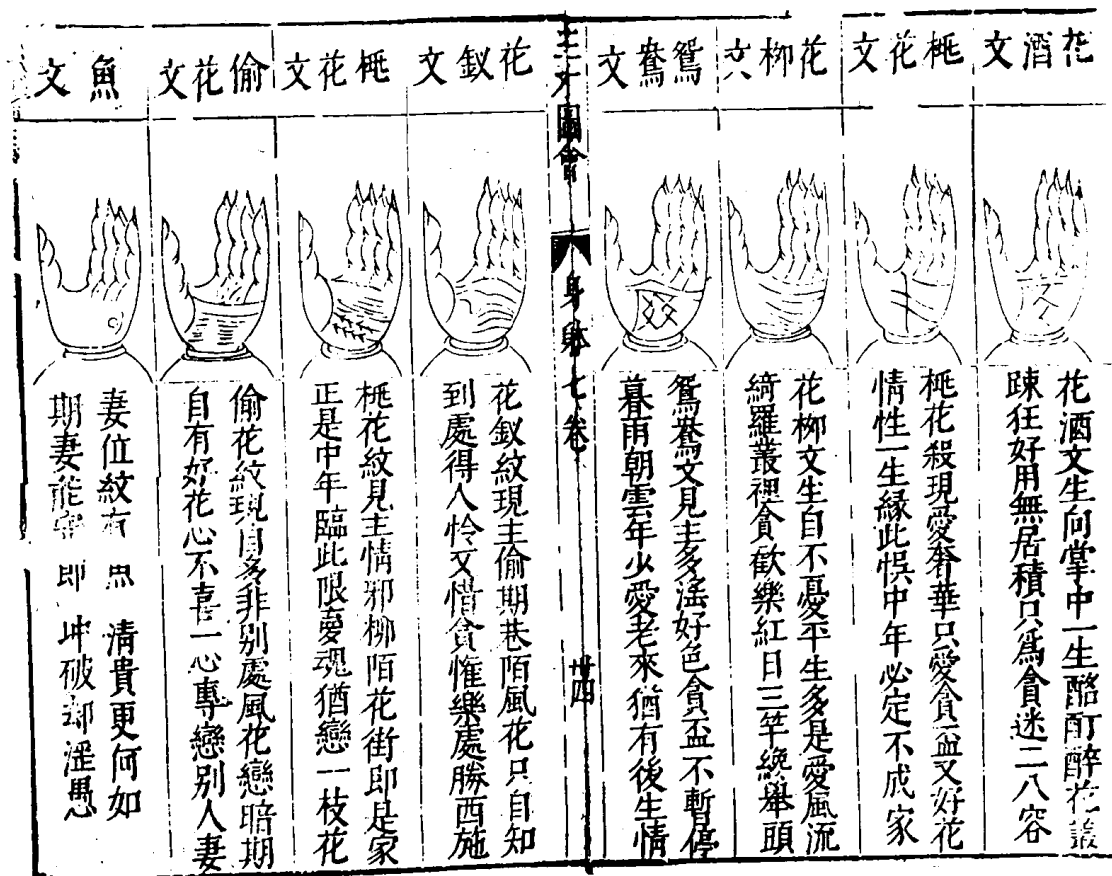 花酒文
花酒文生向掌中一生酩酊醉花叢
踈狂好用無居積只為貪迷二八容
桃花文
桃花殺現愛奢華只愛貪盃又好花
情性一生緣此悞中年必定不成家
花柳文
花柳文生自不憂平生多是愛風流
綺羅叢裡貪歡樂紅日三竿纔舉頭
鴛鴦文
鴛鴦文見主多滛好色貪盃不暫停
暮雨朝雲年少愛老來猶有後生情
三才圖會
身體七卷
卅四
花釵文
花釵紋現主偷期巷陌風花只自知
到處得人怜又惜貪懽樂處勝西施
桃花文
桃花紋見主情邪柳陌花街即是家
正是中年臨此限夢魂猶戀一枝花
偷花文
偷花紋現自多非別處風花戀暗期
自有好花心不喜一心專戀別人妻
魚文
妻位紋有魚清貴更何如
期妻能 即 坤破却滛愚